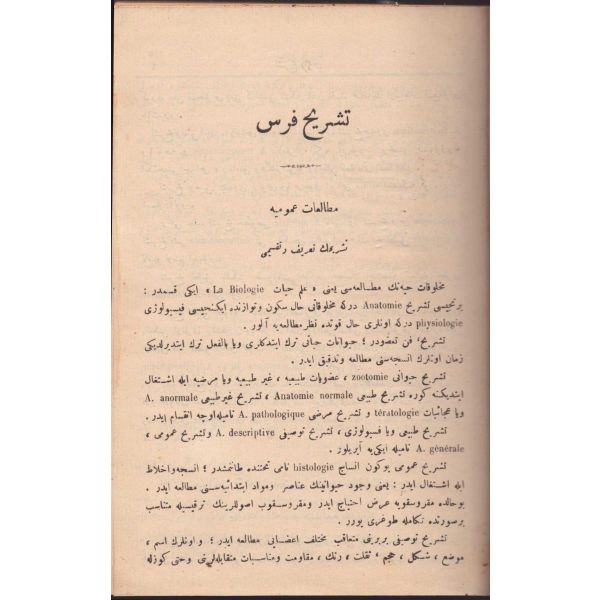 تشريح فرس
مطالعات عموميه
تشريحك تعريف و تقسيمى
مخلوقات حيه‌نك مطالعه‌سى يعنى « علم حيات La Biologie » ايكى قسمدر :
برنجيسى تشريح Anatomie دركه مخلوقاتى حال سكون وتوازنده ايكنجيسى فيسيولوژى
physiologie دركه اونلرى حال قوتده نظر مطالعه‌يه آلور .
تشريح، فن تعضودر ؛ حيوانات حياتى ترك ايتدكلرى ويا بالفعل ترك ايتديرلديكى
زمان اونلرك انسجه‌سنى مطالعه وتدقيق ايدر .
تشريح حيوانى zootomie ، عضويات طبيعيه ، غير طبيعيه ويا مرضيه ايله اشتغال
ايتديكنه كوره تشريح طبيعى Anatomie normale ، تشريح غيرطبيعى A. anormale
ويا عجائبات tératologie و تشريح مرضى A. pathologique ناميله اوچه انقسام ايدر .
تشريح طبيعى ويا فسيولوژى ، تشريح توصيفى A. descriptive و تشريح عمومى ،
A. générale ناميله ايكى‌يه آيريلور .
تشريح عمومى بوكون انساج histologie نامى تحتنده طانتمشدر ؛ انسجه واخلاط
ايله اشتغال ايدر : يعنى وجود حيوانينك عناصر ومواد ابتدائيه‌سنى مطالعه ايدر .
بوحالده مقروسقوبه عرض احتياج ايدر ومقروسقوب اصوللرينك ترقيسيله متناسب
برصورتده تكامله طوغرى يورر .
تشريح توصيفى بربرينى متعاقب مختلف اعضايى مطالعه ايدر ؛ و اونلرك اسم ،
موضع ، شكل ، حجم ، ثقلت ، رنك ، مقاومت ومناسبات متقابله‌لرينى وحتى كوزله